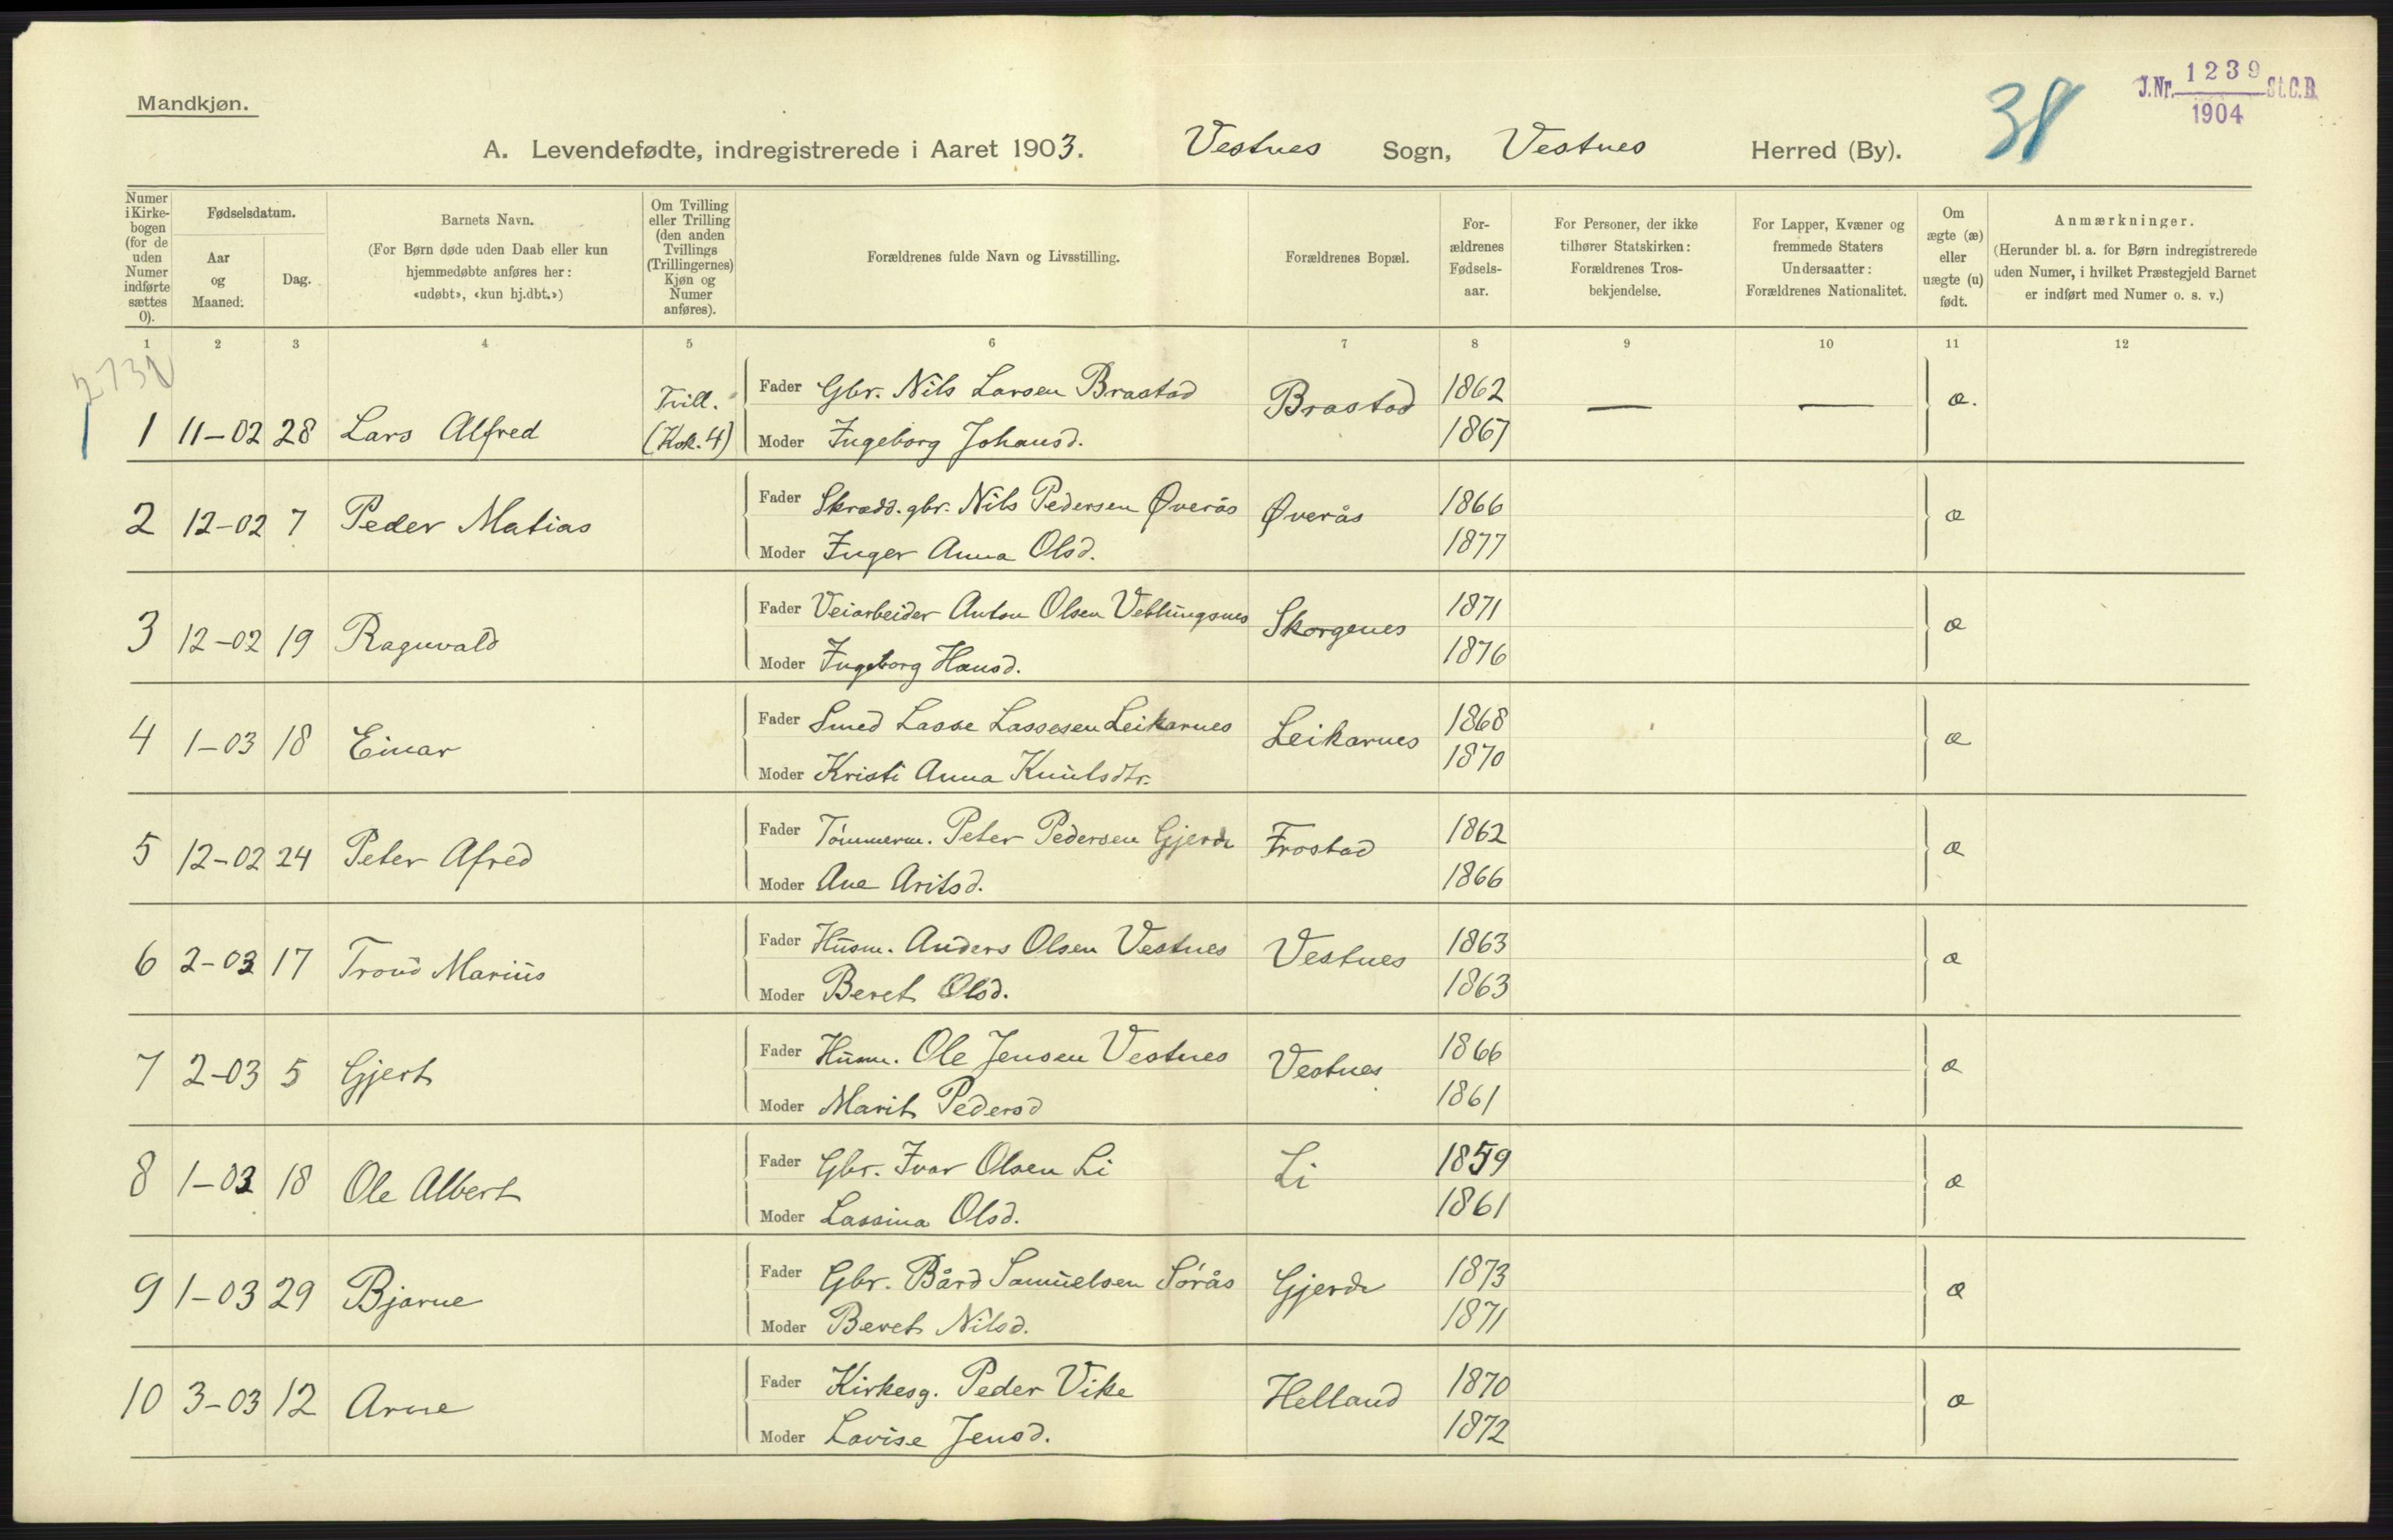 Mandkjøn.
J.Nr. 1239 St.C.B.
1904
38
A. Levendefødte, indregistrerede i Aaret 1903. Vestnes Sogn, Vestnes Herred (By).
Numer i Kirkebogen (for de uden Numer indførte sættes 0).
Fødselsdatum.
Aar og Maaned.
Dag.
Barnets Navn.
(For Børn døde uden Daab eller kun hjemmedøbte anføres her: «udøbt», «kun hj.dbt.»)
Om Tvilling eller Trilling (den anden Tvillings (Trillingernes) Kjøn og Numer anføres).
Forældrenes fulde Navn og Livsstilling.
Forældrenes Bopæl.
Forældrenes Fødselsaar.
For Personer, der ikke tilhører Statskirken: Forældrenes Trosbekjendelse.
For Lapper, Kvæner og fremmede Staters Undersaatter: Forældrenes Nationalitet.
Om ægte (æ) eller uægte (u) født.
Anmærkninger.
(Herunder bl. a. for Børn indregistrerede uden Numer, i hvilket Præstegjeld Barnet er indført med Numer o. s. v.)
1 2 3 4 5 6 7 8 9 10 11 12
1 11-02 28 Lars Alfred Tvill. (Kvk. 4) Fader Gbr. Nils Larsen Brastad Brastad 1862 — — æ.
Moder Ingeborg Johansd. 1867
2 12-02 7 Peder Matias Fader Skrædd. gbr. Nils Pedersen Øverås Øverås 1866 æ
Moder Inger Anna Olsd. 1877
3 12-02 19 Ragnvald Fader Veiarbeider Anton Olsen Veblungsnes Skorgenes 1871 æ
Moder Ingeborg Hansd. 1876
4 1-03 18 Einar Fader Smed Lasse Lassesen Leikarnes Leikarnes 1868 æ
Moder Kristi Anna Knutsdtr. 1870
5 12-02 24 Peter Afred Fader Tömmerm. Peter Pedersen Gjerde Frostad 1862 æ
Moder Ane Aritsd. 1866
6 2-03 17 Trond Marius Fader Husm. Anders Olsen Vestnes Vestnes 1863 æ
Moder Beret Olsd. 1863
7 2-03 5 Gjert Fader Husm. Ole Jensen Vestnes Vestnes 1866 æ
Moder Marit Pedersd 1861
8 1-03 18 Ole Albert Fader Gbr. Ivar Olsen Li Li 1859 æ
Moder Lassina Olsd. 1861
9 1-03 29 Bjarne Fader Gbr. Bård Samuelsen Sörås Gjerde 1873 æ
Moder Beret Nilsd. 1871
10 3-03 12 Arne Fader Kirkesg. Peder Vike Helland 1870 æ
Moder Lovise Jensd. 1872